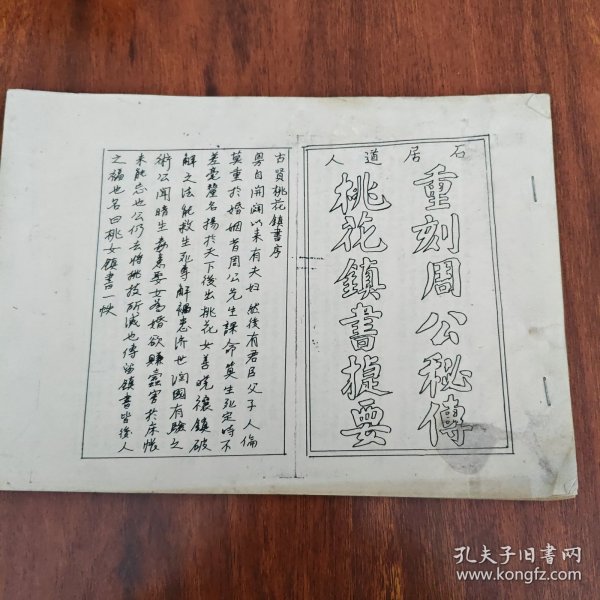 石居道人
重刻周公秘傳
桃花鎮書捷要
古買桃花鎮書序
粤自開闢以來有夫妇然後有君臣父子人倫
莫重於婚姻昔周公先生課命莫生死定時不
差毫釐名揚於天下後出桃花女善曉禳鎮破
解文法能救生死專解禍患济世润國有驗之
術公聞暗生毒意娶女為婚欲賺蠱害於床帳
未能忘也公仍去將挑技所滅也傳留鎮書皆後人
之编也名曰桃女鎮書一帙
孔夫子旧书网
www.kongfz.com